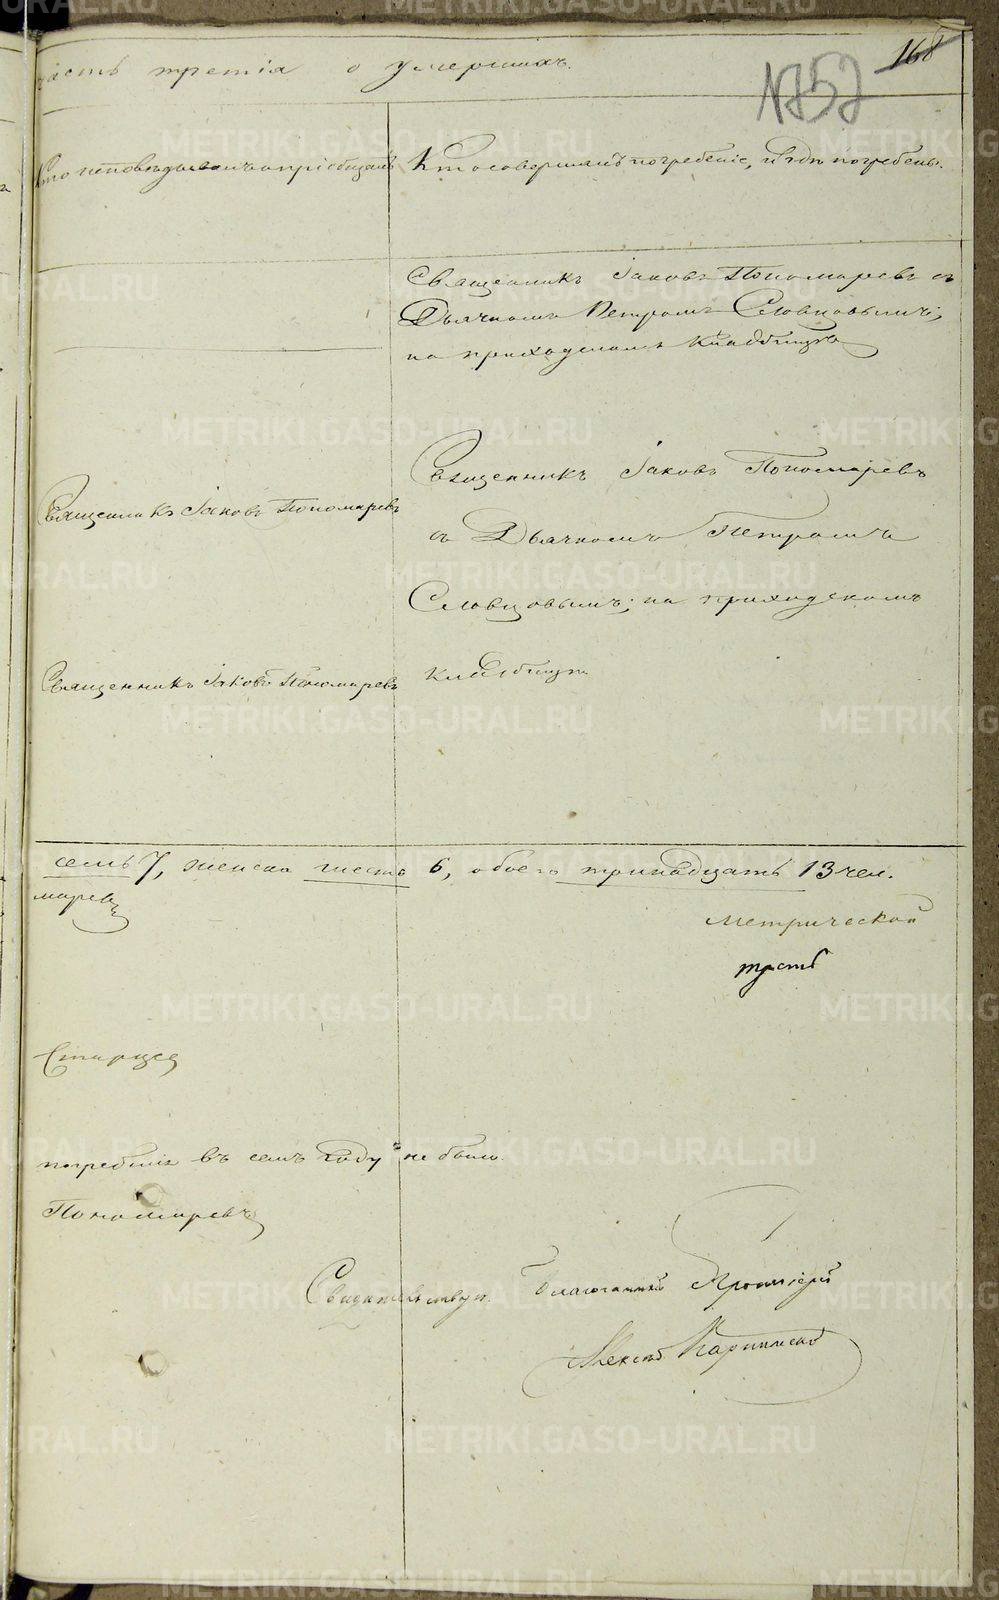 часть третія о умершихъ.
168
Кто исповѣдывалъ и пріобщалъ
Кто совершалъ погребеніе, и гдѣ погребены.
Священникъ Іаковъ Пономаревъ съ
Дьячкомъ Петромъ Словцовымъ;
на приходскомъ кладбищѣ
Священникъ Іаковъ Пономаревъ
Священникъ Іаковъ Пономаревъ
съ Дьячкомъ Петромъ
Словцовымъ; на приходскомъ
Священникъ Іаковъ Пономаревъ
кладбищѣ
семь 7, женска шесть 6, обоего тринадцать 13 чел.
маревъ
Метрической
Старцев
погребенія въ семъ году не было
Пономаревъ
Свидѣтельствую Благочинный Протоіерей
METRIKI.GASO-URAL.RU